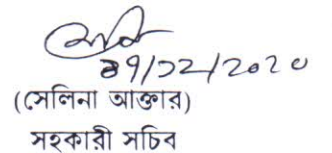 ৩১/১২/২০২০
(সেলিনা আক্তার)
সহকারী সচিব